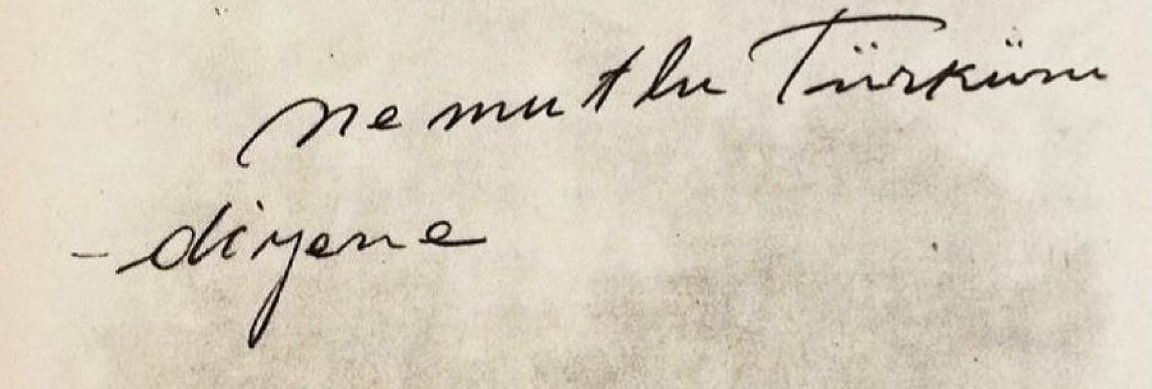 Ne mutlu Türküm
- diyene